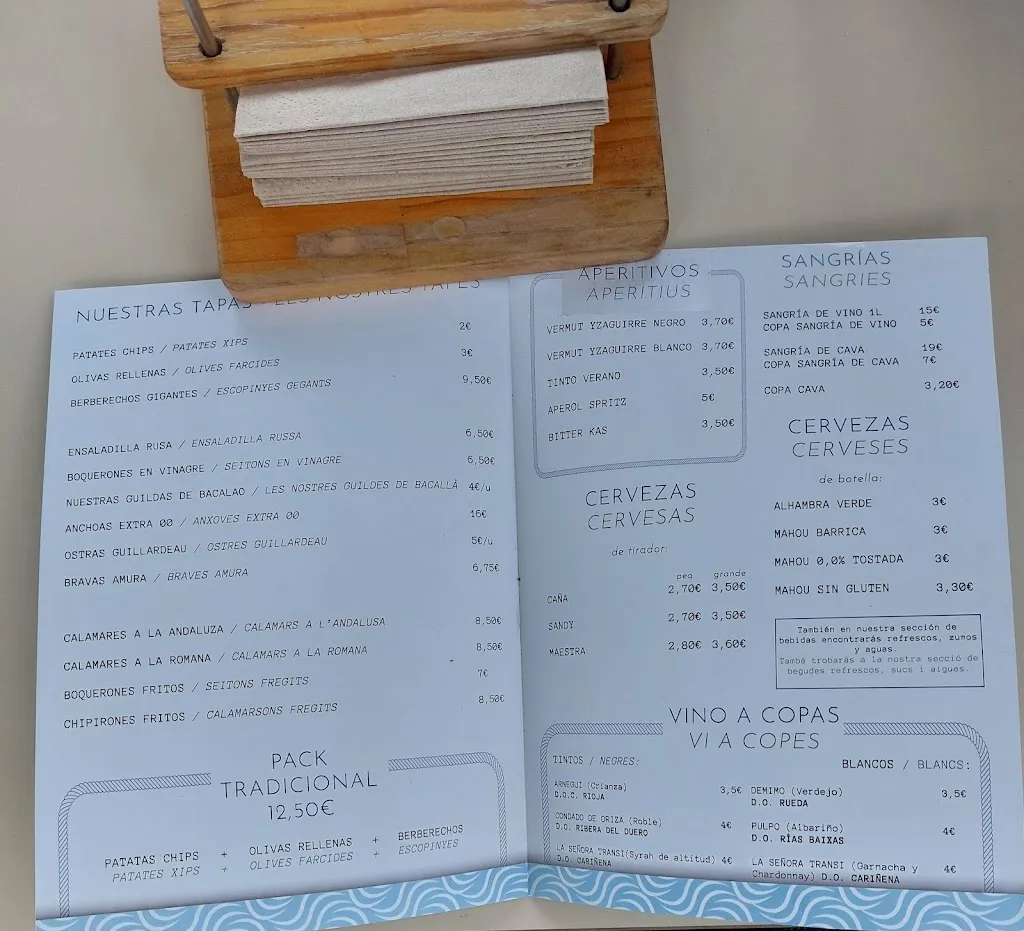 NUESTRAS TAPAS - LES NOSTRES TAPES
PATATES CHIPS / PATATES XIPS 2€
OLIVAS RELLENAS / OLIVES FARCIDES 3€
BERBERECHOS GIGANTES / ESCOPINYES GEGANTS 9,50€
ENSALADILLA RUSA / ENSALADILLA RUSSA 6,50€
BOQUERONES EN VINAGRE / SEITONS EN VINAGRE 6,50€
NUESTRAS GUILDAS DE BACALAO / LES NOSTRES GUILDES DE BACALLÀ 4€/u
ANCHOAS EXTRA 00 / ANXOVES EXTRA 00 16€
OSTRAS GUILLARDEAU / OSTRES GUILLARDEAU 5€/u
BRAVAS AMURA / BRAVES AMURA 6,75€
CALAMARES A LA ANDALUZA / CALAMARS A L'ANDALUSA 8,50€
CALAMARES A LA ROMANA / CALAMARS A LA ROMANA 8,50€
BOQUERONES FRITOS / SEITONS FREGITS 7€
CHIPIRONES FRITOS / CALAMARSONS FREGITS 8,50€
PACK
TRADICIONAL
12,50€
PATATAS CHIPS + OLIVAS RELLENAS + BERBERECHOS
PATATES XIPS + OLIVES FARCIDES + ESCOPINYES
APERITIVOS
APERITIUS
VERMUT YZAGUIRRE NEGRO 3,70€
VERMUT YZAGUIRRE BLANCO 3,70€
TINTO VERANO 3,50€
APEROL SPRITZ 5€
BITTER KAS 3,50€
CERVEZAS
CERVESAS
de tirador:
peq grande
CAÑA 2,70€ 3,50€
SANDY 2,70€ 3,50€
MAESTRA 2,80€ 3,60€
SANGRÍAS
SANGRIES
SANGRÍA DE VINO 1L 15€
COPA SANGRÍA DE VINO 5€
SANGRÍA DE CAVA 19€
COPA SANGRÍA DE CAVA 7€
COPA CAVA 3,20€
CERVEZAS
CERVESES
de botella:
ALHAMBRA VERDE 3€
MAHOU BARRICA 3€
MAHOU 0,0% TOSTADA 3€
MAHOU SIN GLUTEN 3,30€
También en nuestra sección de
bebidas encontrarás refrescos, zumos
y aguas.
També trobaràs a la nostra secció de
begudes refrescos, sucs i aigues.
VINO A COPAS
VI A COPES
TINTOS / NEGRES:
ARNEGUI (Crianza) 3,5€
D.O.C. RIOJA
CONDADO DE ORIZA (Roble) 4€
D.O. RIBERA DEL DUERO
LA SEÑORA TRANSI(Syrah de altitud) 4€
D.O. CARIÑENA
BLANCOS / BLANCS:
DEMIMO (Verdejo) 3,5€
D.O. RUEDA
PULPO (Albariño) 4€
D.O. RÍAS BAIXAS
LA SEÑORA TRANSI (Garnacha y 4€
Chardonnay) D.O. CARIÑENA